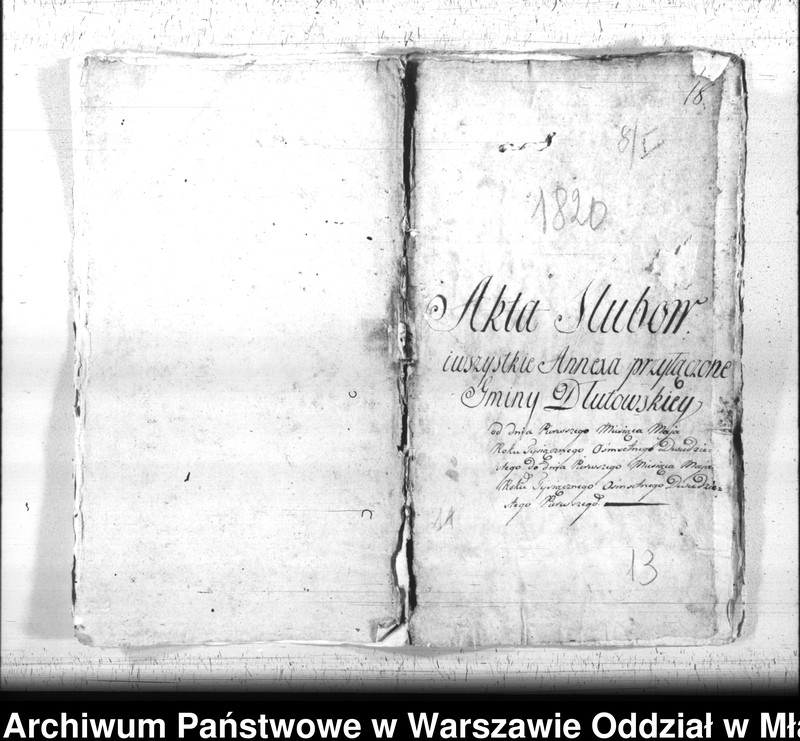 18.
8/I
1820
Akta Slubow
iwszystkie Annexa przyłączone
Gminy Dłutowskiey
od dnia Pierwszego Miesiąca Maja
Roku Tysiącznego Ośmsetnego Dwudzie-
stego do dnia Pierwszego Miesiąca Maja
Roku Tysiącznego Ośmsetnego Dwudzie-
stego Pierwszego
13
Archiwum Państwowe w Warszawie Oddział w Mła